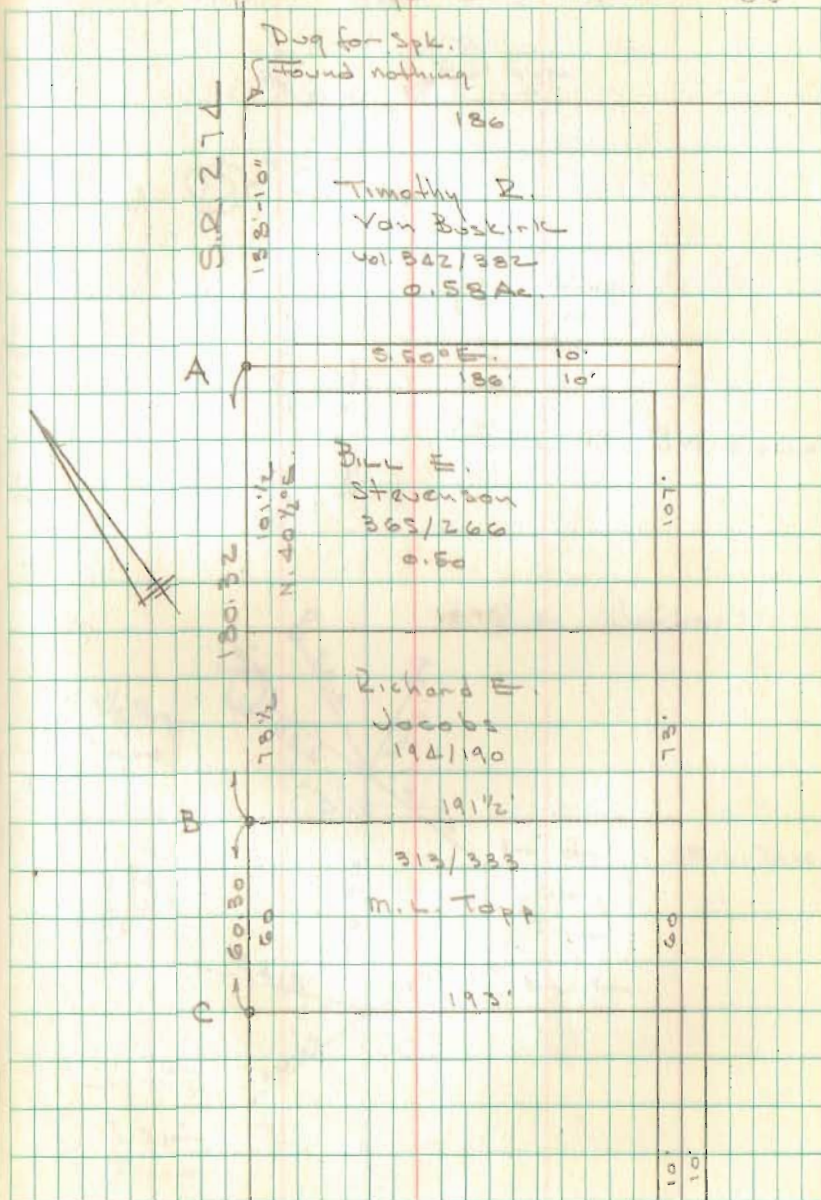 Dug for Spk.
Found nothing
186
S.R. 274
138'-10"
Timothy R.
Van Buskirk
Vol. 342/382
0.58 Ac.
A
S. 50° E. 10'
186' 10'
Bill E.
Stevenson
365/266
0.50
101 1/2
N. 40 1/2° E.
107'
180.32
Richard E.
Jacobs
194/190
78 1/2
73'
B
191 1/2'
313/333
M. L. Tapp
60.30
60
60
C
193'
10'
10'